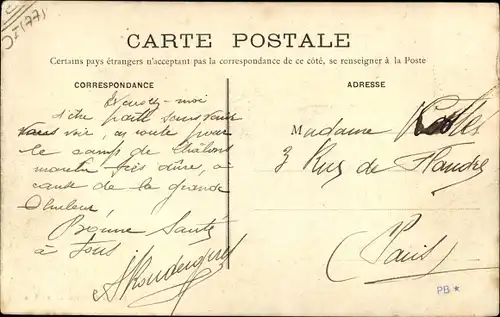 DI (77)
CARTE POSTALE
Certains pays étrangers n'acceptant pas la correspondance de ce côté, se renseigner à la Poste
CORRESPONDANCE
Excusez-moi
d'être parti sans vous
voir, en route pour
le camp de Châlons
très dure, à
cause de la grande
chaleur,
Bonne Santé
à Tous
ADRESSE
Madame
3 Rue de Flandre
(Paris)
PB *